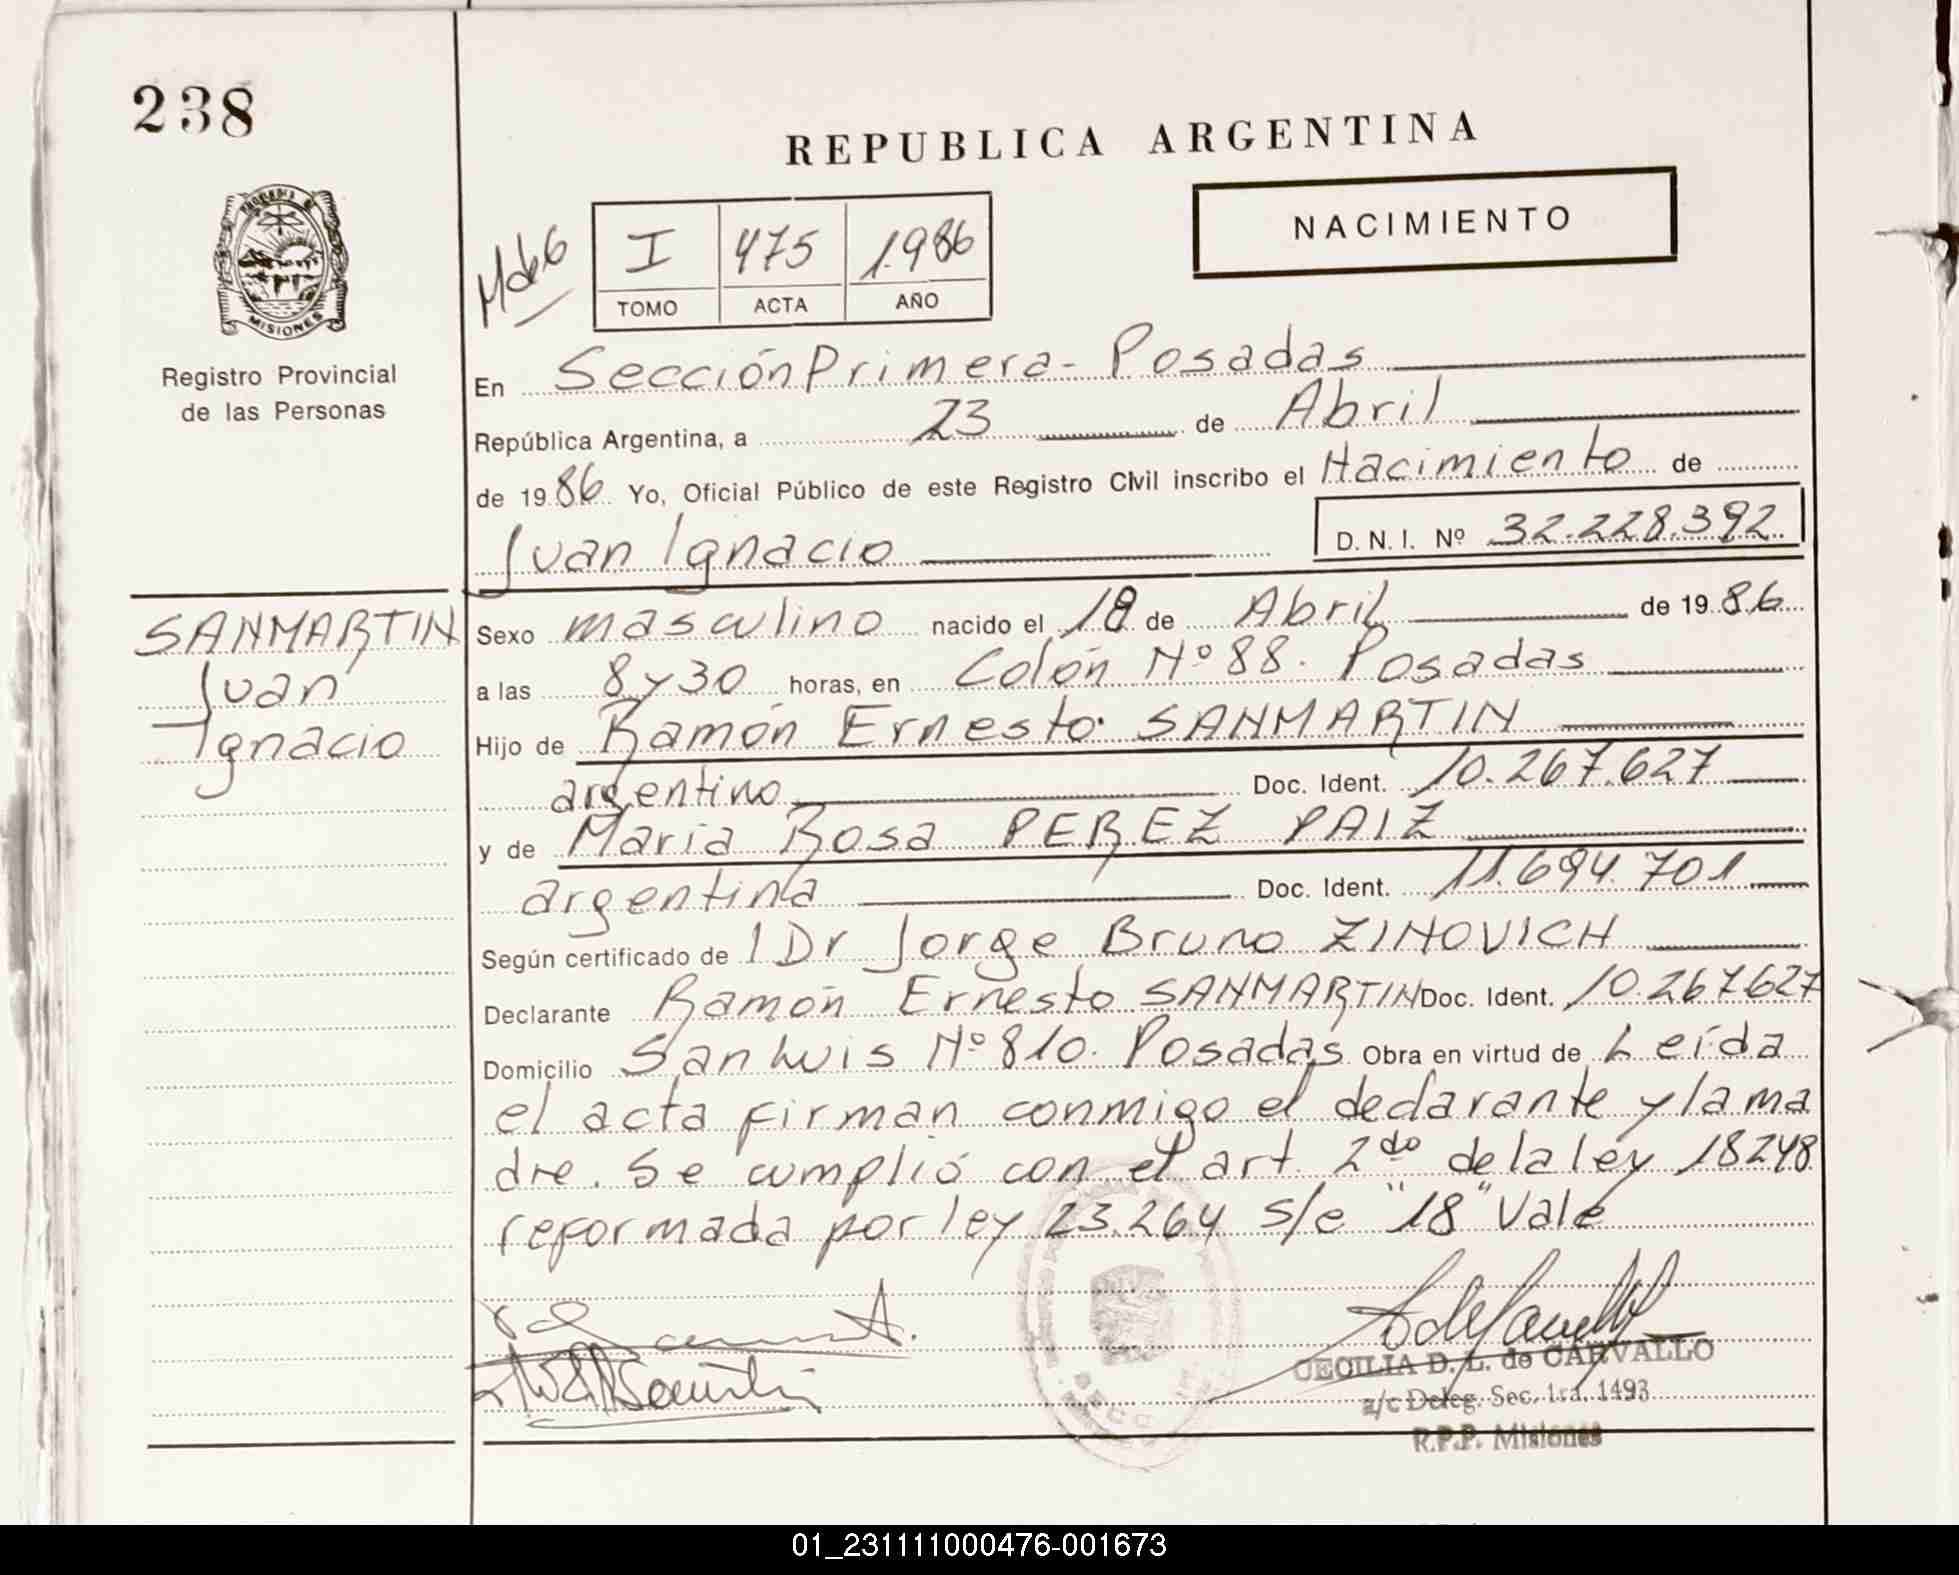 238
REPUBLICA ARGENTINA
NACIMIENTO
I 475 1.986
TOMO ACTA AÑO
PROVINCIA DE
MISIONES
Registro Provincial
de las Personas
En Sección Primera - Posadas
República Argentina, a 23 de Abril
de 1986 Yo, Oficial Público de este Registro Civil inscribo el Nacimiento de
Juan Ignacio D. N. I. Nº 32.228.392
SANMARTIN
Juan
Ignacio
Sexo masculino nacido el 18 de Abril de 1986
a las 8 y 30 horas, en Colón Nº 88. Posadas
Hijo de Ramón Ernesto SANMARTIN
argentino Doc. Ident. 10.267.627
y de María Rosa PEREZ PAIZ
argentina Doc. Ident. 11.694.701
Según certificado de l Dr Jorge Bruno ZINOVICH
Declarante Ramón Ernesto SANMARTIN Doc. Ident. 10.267.627
Domicilio San Luis Nº 810. Posadas Obra en virtud de Leída
el acta firman conmigo el declarante y la ma
dre. Se cumplió con el art. 2do de la ley 18248
reformada por ley 23.264 s/e "18" Vale
CECILIA D. L. de CARVALLO
a/c Deleg. Sec. 1ra. 1493
R.P.P. Misiones
01_231111000476-001673